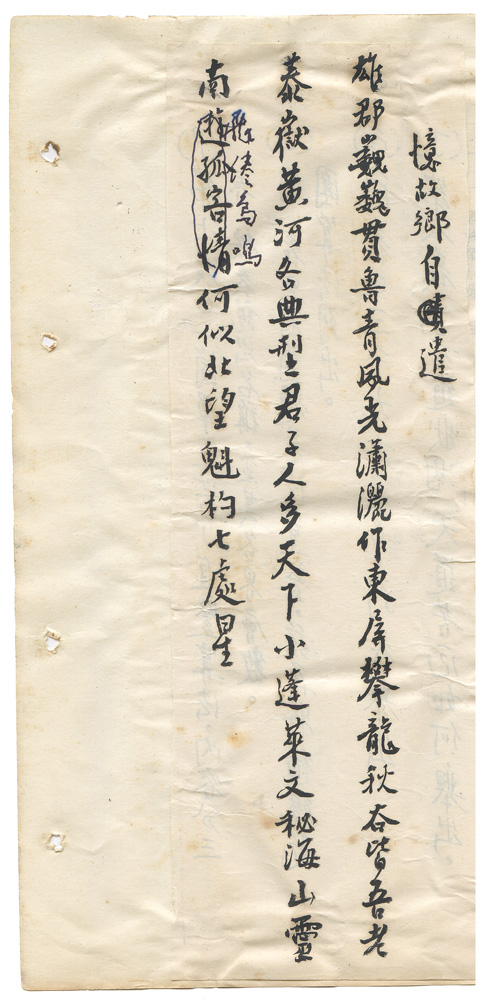 憶故鄉自遣
雄郡巍巍貫魯青風光瀟灑作東屏攀龍秋谷皆吾老
泰嶽黃河各典型君子人多天下小蓬萊文秘海山靈
南遊孤寄情何似北望魁杓七處星
飛倦鳥鳴